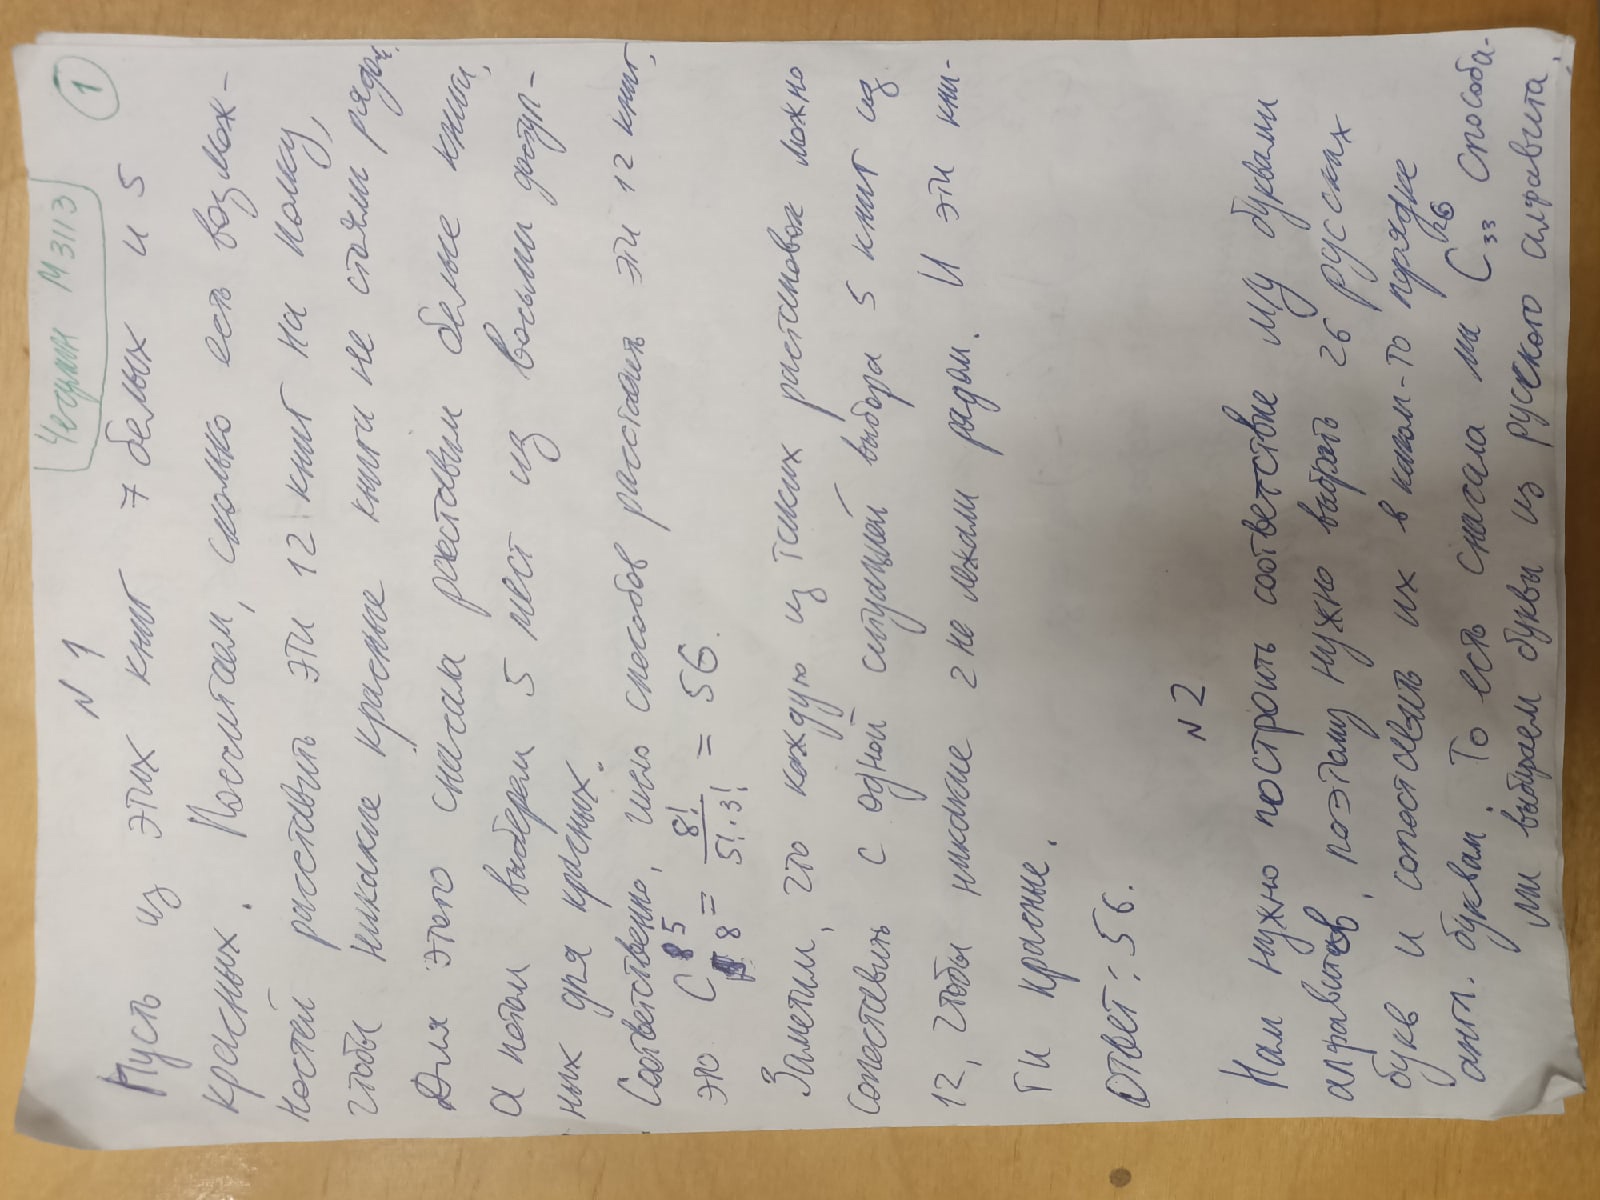 Чегурин М3113
1
N 1
Пусть из этих книг 7 белых и 5
красных. Посчитаем, сколько есть возмож-
ностей расставить эти 12 книг на полку,
чтобы никакие красные книги не стояли рядом.
Для этого сначала расставим белые книги,
а потом выберем 5 мест из восьми доступ-
ных для красных.
Соответственно, число способов расставить эти 12 книг,
это C⁵₈ = 8!/(5!·3!) = 56.
Заметим, что каждую из таких расстановок можно
сопоставить с одной ситуацией выбора 5 книг из
12, чтобы никакие 2 не лежали рядом. И эти кни-
ги красные.
Ответ: 56.
N 2
Нам нужно построить соответствие м/у буквами
алфавитов, поэтому нужно выбрать 26 русских
букв и сопоставить их в каком-то порядке
англ. буквам. То есть сначала мы C²⁶₃₃ способа-
ми выбираем буквы из русского алфавита,